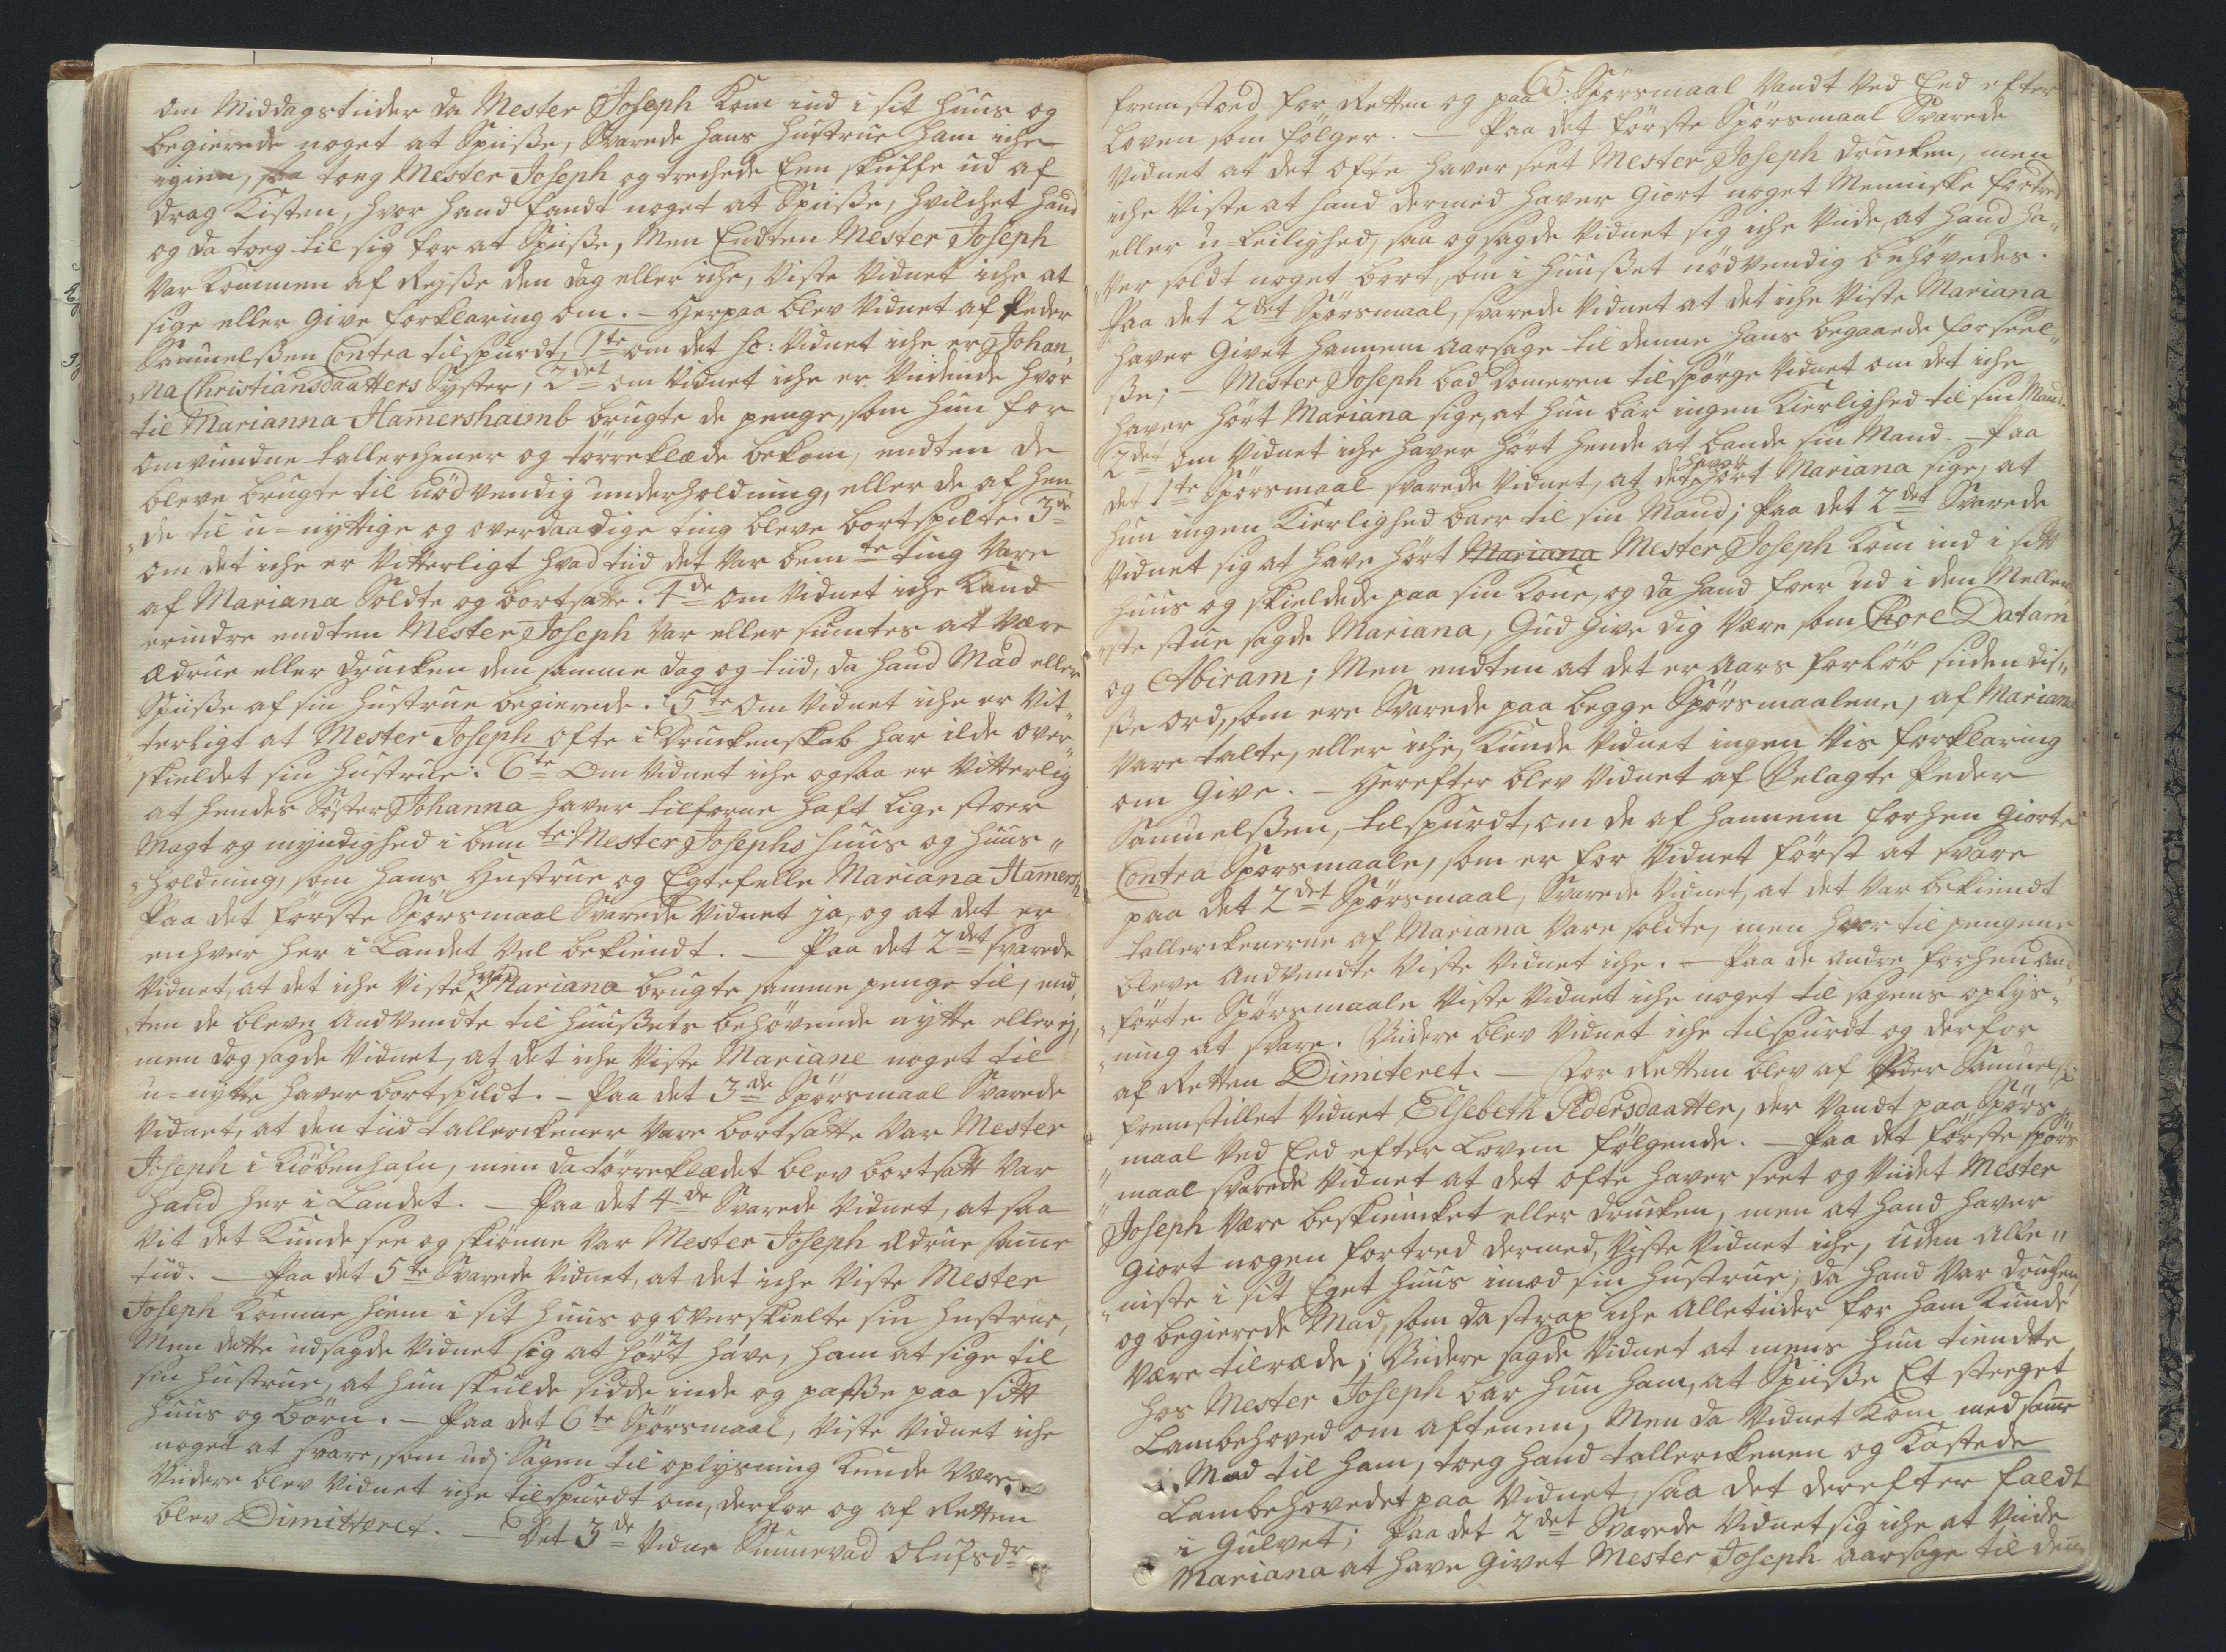 om Middagstiider da Mester Joseph kom ind i sit Huus og
begierede noget at Spiiße, Svarede hans Hustrue ham iche
igien, saa toeg Mester Joseph og trechede Een skuffe ud af
drag Kisten, hvor hand fandt noget at Spiiße, hvilchet hand
og da toeg til sig for at Spiiße, Men Endten Mester Joseph
Var kommen af Reyße den dag eller iche, Viste Vidnet iche at
sige eller Give forklaring om. – Herpaa blev Vidnet af Peder
Samuelßen Contra tilspurdt, 1te om det sc: Vidnet iche er Johan,,
,,na Christiansdaatters Syster, 2det om Vidnet iche er Viidende hvor
til Marianna Hamershaimb brugte de penge, som hun for
omvundne tallerchener og törreklæde bekom, endten de
bleve brugte til nödvendig underholdning, eller de af hen,,
,,de til u=nyttige og overdaadige ting bleve bortspilte. 3de
om det iche er Vitterligt hvad tiid det Var bemte ting Vare
af Mariana Soldte og bortsatte. 4de om Vidnet iche Kand
erindre endten Mester Joseph Var eller siuntes at Være
Ædrue eller drucken den samme dag og tiid, da hand Mad eller
Spiiße af sin Hustrue begierede. 5te Om Vidnet iche er Vit,,
,,terligt at Mester Joseph ofte i Druckenskab har ilde over,,
,,skieldet sin Hustrue. 6te Om Vidnet iche ogsaa er Vitterlig
at hendes Söster Johanna haver tilforne haft lige stoer
Magt og myndighed i bemte Mester Josephs Huus og Huus,,
,,holdning, som hans Hustrue og Egtefelle Mariana Hamersh
Paa det förste Spörsmaal Svarede Vidnet ja, og at det er
enhver her i Landet Vel bekiendt. – Paa det 2det svarede
Vidnet, at det iche Viste hvad Mariana brugte samme penge til, end,,
,,ten de bleve AndVendte til Huußets behövende nytte eller ej,
men dog sagde Vidnet, at det iche Viste Mariane noget til
u=nytte haver bortspildt. – Paa det 3de Spörsmaal Svarede
Vidnet, at den tiid tallerckener Vare bortsatte Var Mester
Joseph i Kiöbenhafn, men da törreklædet blev bortsatt Var
hand her i Landet. – Paa det 4de Svarede Vidnet, at saa
Vit det Kunde see og skiönne Var Mester Joseph Ædrue same
tiid. – Paa det 5te Svarede Vidnet, at det iche Viste Mester
Joseph Komme hiem i sit Huus og overskielte sin Hustrue,
Men dette udsagde Vidnet sig at hört have, ham at sige til
sin Hustrue, at hun skulde sidde inde og paßße paa sitt
Huus og Börn. – Paa det 6te Spörsmaal, Viste Vidnet iche
noget at svare, som udi Sagen til oplysning Kunde Være.
Viidere blev Vidnet iche tilspurdt om, derfor og af Retten
blev Dimitteret. – Det 3de Vidne Sunnevad Olufsdr
65.
fremstoed for Retten og paa Spörsmaal Vandt Ved Eed efter
Loven som fölger. – Paa det förste Spörsmaal Svarede
Vidnet at det ofte haver seet Mester Joseph drucken, men
iche Viste at hand dermed haver Giort noget Menniske fortred
eller u=leilighed, saa og sagde Vidnet sig iche Viide, at hand ha,,
,,ver soldt noget bort, som i Huußet nödVendig behövedes.
Paa det 2det Spörsmaal, svarede Vidnet at det iche Viste Mariana
haver Givet hannem Aarsage til denne hans begaaede forseel,,
ße; – Mester Joseph bad Domeren tilspörge Vidnet om det iche
haver hört Mariana sige, at hun bar ingen Kierlighed til sin Mand.
2det Om Vidnet iche haver hört hende at bande sin Mand. – Paa
det 1te Spörsmaal svarede Vidnet, at det haver hört Mariana sige, at
hun ingen Kierlighed baer til sin Mand; Paa det 2det Svarede
Vidnet sig at have hört Mariana Mester Joseph kom ind i sitt
Huus og skieldede paa sin Kone, og da hand foer ud i den Mellem,,
,,ste stue sagde Mariana, Gud Give dig Være som Chore Datam
og Abiram; Men endten at det er Aars forlöb siiden dis,,
ße ord, som ere Svarede paa begge Spörsmaalene, af Mariana
Vare talte, eller iche, Kunde Vidnet ingen Vis forklaring
om Give. – Herefter blev Vidnet af Velagte Peder
Samuelßen, tilspurdt, om de af hannem forhen Giorte
Contra Sporsmaale, som er for Vidnet först at svare
paa det 2det Spörsmaal, Svarede Vidnet, at det Var bekiendt
tallerckenerne af Mariana Vare soldte, men hvor til pengene
bleve AndVendte Viste Vidnet iche. – Paa de andre forhen an,,
,,förte Spörsmaale Viste Vidnet iche noget til sagens oplys,,
,,ning at svare. Viidere blev Vidnet iche tilspurdt og derfor
af Retten Dimiteret. – For Retten blev af Peder Samuels:
fremstillet Vidnet Elsebeth Pedersdaatter, der Vandt paa Spörs,,
,,maal Ved Eed efter Loven fölgende. – Paa det förste spörs
,,maal svarede Vidnet at det ofte haver seet og Viidet Mester
Joseph Være beskiencket eller drucken, men at hand haver
Giort nogen fortred dermed, Viste Vidnet iche, uden Alle,,
,,niste i sit Eget Huus imod sin Hustrue; da hand Var druchen,
og begierede Mad, som da strax iche Alletiider for ham Kunde
Være tilræde; Viidere sagde Vidnet at mens hun tiendte
hos Mester Joseph bar hun ham, at Spiiße Et steeget
Lambehoved om aftenen, Men da Vidnet kom med same
Mad til ham, toeg hand tallerckenen og Kastede
Lambehovedet paa Vidnet, saa det derefter faldt
i Gulvet; Paa det 2det Svarede Vidnet sig iche at Viide
Mariana at have Givet Mester Joseph aarsage til denne